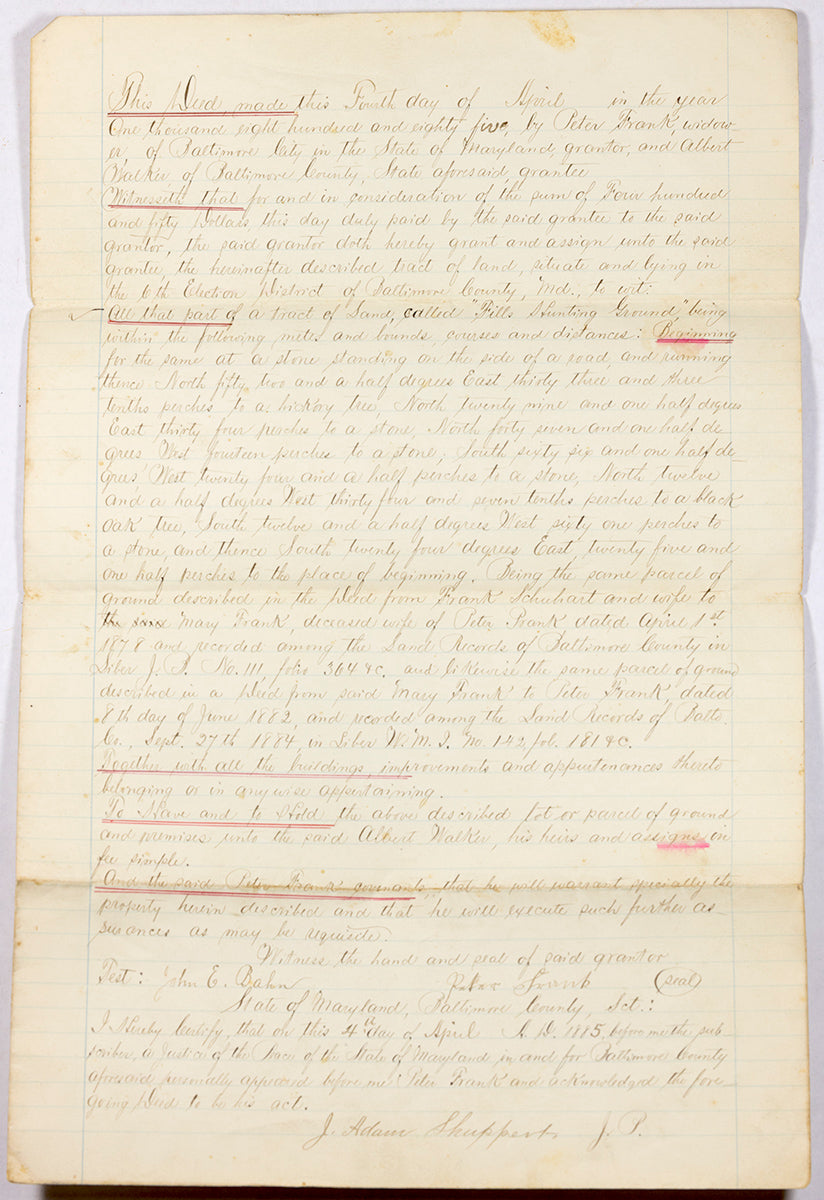 This Deed, made this Fourth day of April in the year
One thousand eight hundred and eighty five, by Peter Frank, widow-
er, of Baltimore City in the State of Maryland, grantor, and Albert
Walker, of Baltimore County, State aforesaid, grantee
Witnesseth that for and in consideration of the sum of Four hundred
and fifty Dollars this day duly paid by the said grantee to the said
grantor, the said grantor doth hereby grant and assign unto the said
grantee, the hereinafter described tract of land, situate and lying in
the 6th Election District of Baltimore County, Md., to wit:
All that part of a tract of Land, called "Fills Hunting Ground," being
within the following metes and bounds, courses and distances: Beginning
for the same at a stone standing on the side of a road, and running
thence North fifty two and a half degrees East thirty three and three
tenths perches to a hickory tree, North twenty nine and one half degrees
East thirty four perches to a stone, North forty seven and one half de-
grees West fourteen perches to a stone, South sixty six and one half de-
grees West twenty four and a half perches to a stone, North twelve
and a half degrees West thirty four and seven tenths perches to a black
oak tree, South twelve and a half degrees West sixty one perches to
a stone, and thence South twenty four degrees East, twenty five and
one half perches to the place of beginning. Being the same parcel of
ground described in the Deed from Frank Schuhart and wife to
Mary Frank, deceased wife of Peter Frank dated April 1st
1878 and recorded among the Land Records of Baltimore County in
Liber J. B. No. 111, folio 364 &c. and likewise the same parcel of ground
described in a Deed from said Mary Frank to Peter Frank, dated
8th day of June 1882, and recorded among the Land Records of Balto.
Co., Sept. 27th 1884, in Liber W. M. I. No. 142, fol. 181 &c.
Together with all the buildings, improvements and appurtenances thereto
belonging or in any wise appertaining.
To Have and to Hold the above described lot or parcel of ground
and premises unto the said Albert Walker, his heirs and assigns in
fee simple.
And the said Peter Frank covenants, that he will warrant specially the
property herein described and that he will execute such further as-
surances as may be requisite.
Witness the hand and seal of said grantor
Test: John E. Bahn Peter Frank (seal)
State of Maryland, Baltimore County, Sct.:
I Hereby Certify, that on this 4th day of April A. D. 1885, before me the sub-
scriber, a Justice of the Peace of the State of Maryland in and for Baltimore County
aforesaid personally appeared before me Peter Frank and acknowledged the fore-
going Deed to be his act.
J. Adam Shuppert J. P.